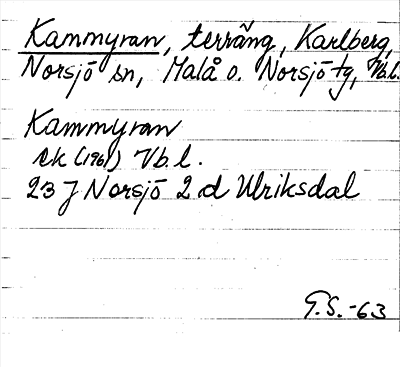 Kammyran, terräng, Karlberg,
Norsjö sn, Malå o. Norsjö tg, Vb.l.
Kammyran
ek (1961) Vb l.
23 J Norsjö 2 d Ulriksdal
G.S. -63